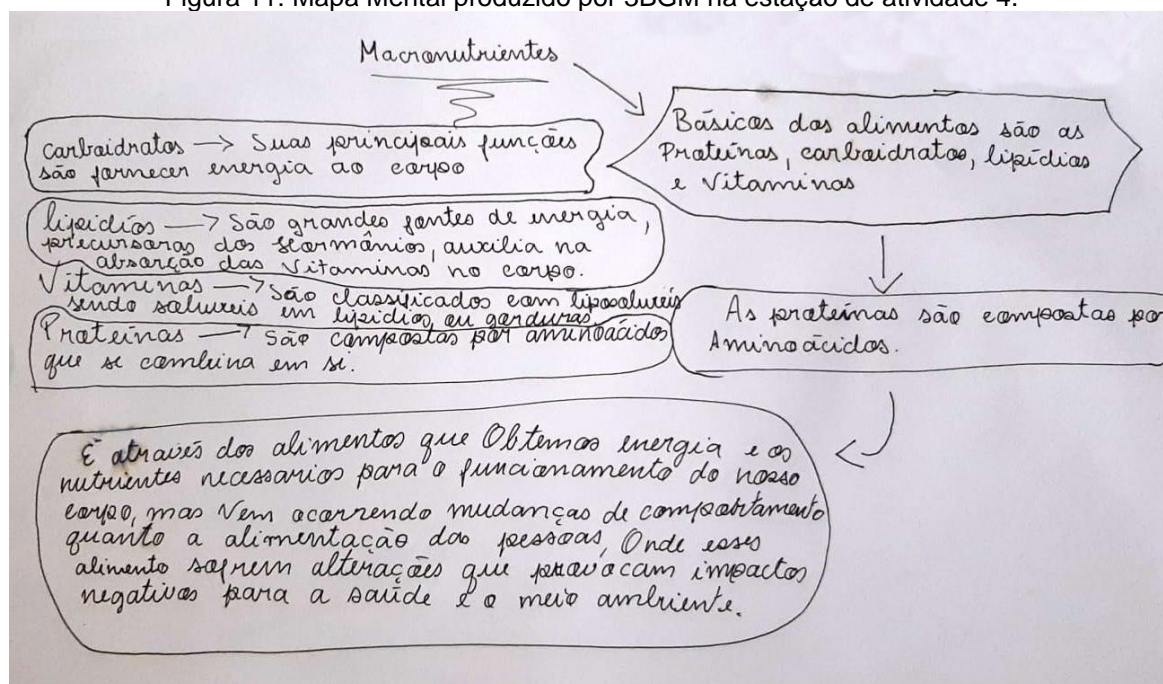 Figura 11: Mapa Mental produzido por 3BGM na estação de atividade 4.
Macronutrientes
Básicos dos alimentos são as
Proteínas, carboidratos, lipídios
e Vitaminas
Carboidratos → Suas principais funções
são fornecer energia ao corpo
lipidíos → São grandes fontes de energia,
precursoras dos Hormônios, auxilia na
absorção das Vitaminas no corpo.
Vitaminas → São classificados com liposoluveis
sendo soluveis em lipidios ou gorduras
Proteínas → São compostas por aminoácidos
que se combina em si.
As proteínas são compostas por
Aminoácidos.
É através dos alimentos que Obtemos energia e os
nutrientes necessarios para o funcionamento do nosso
corpo, mas Vem ocorrendo mudanças de comportamento
quanto a alimentação das pessoas, Onde esses
alimento sofrem alterações que provocam impactos
negativos para a saúde e o meio ambiente.